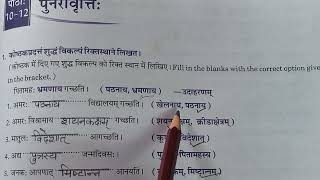 पाठाः
10-12
पुनरावृत्तिः
1. कोष्ठकप्रदत्तं शुद्धं विकल्पं रिक्तस्थाने लिखत।
(कोष्ठक में दिए गए शुद्ध विकल्प को रिक्त स्थान में लिखिए। Fill in the blanks with the correct option given
in the bracket.)
पितामहः भ्रमणाय गच्छति। (पठनाय, भ्रमणाय) —उदाहरणम्
1. अमरः पठनाय विद्यालयम् गच्छति। (खेलनाय, पठनाय)
2. अमरः विश्रामाय शयनकक्षम् गच्छति।
3. मातुलः विदेशात् आगच्छति। विदेशात्)
4. अद्य पुत्रस्य जन्मदिवसः। पितामहस्य)
5. जनकः आपणात् मिष्टान्नं आनयति। मिष्टान्नम्)